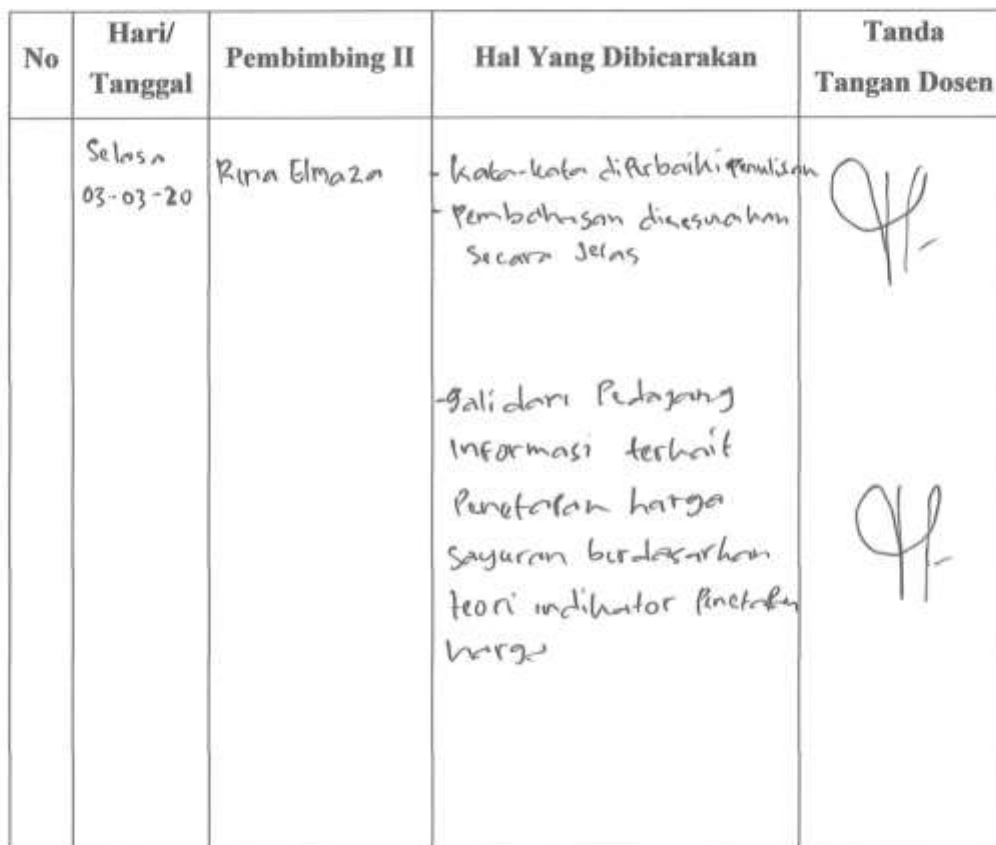 No
Hari/
Tanggal
Pembimbing II
Hal Yang Dibicarakan
Tanda
Tangan Dosen
Selasa
03-03-20
Rina Elmaza
- Kata-kata diperbaiki penulisan
- Pembahasan disesuaikan
secara Jelas
- Gali dari Pedagang
Informasi terkait
Penetapan harga
Sayuran berdasarkan
teori indikator Penetapan
harga